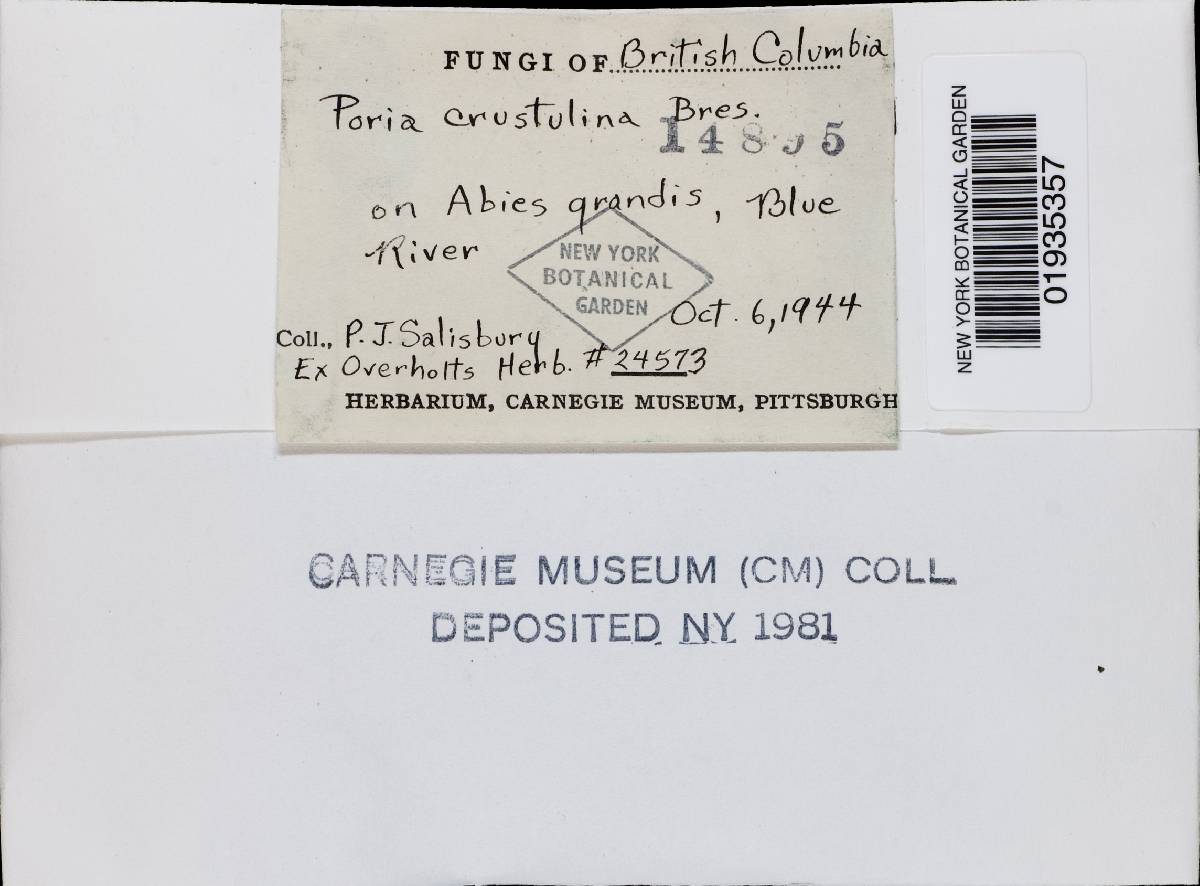 FUNGI OF British Columbia
Poria crustulina Bres.
on Abies grandis, Blue
River
NEW YORK
BOTANICAL
GARDEN
Oct. 6, 1944
Coll., P. J. Salisbury
Ex Overholts Herb. # 24573
HERBARIUM, CARNEGIE MUSEUM, PITTSBURGH
NEW YORK BOTANICAL GARDEN
01935357
CARNEGIE MUSEUM (CM) COLL.
DEPOSITED NY 1981